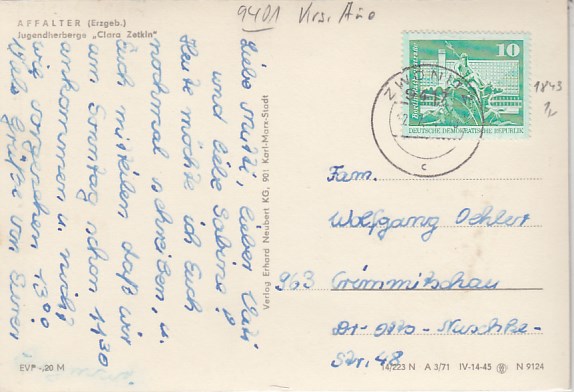 9401 Krs. Aue
AFFALTER (Erzgeb.)
Jugendherberge „Clara Zetkin"
Liebe Mutti, lieber Vati
und liebe Sabine!
Heute möchte ich Euch
nochmal schreiben, u.
Euch mitteilen daß wir
am Sonntag schon 11³⁰
ankommen u. nicht
wie vorgesehen 13⁰⁰
Viele Grüße von Eurer
EVP -,20 M
Verlag Erhard Neubert KG, 901 Karl-Marx-Stadt
10
DEUTSCHE DEMOKRATISCHE REPUBLIK
ZWÖNITZ
9417
c
1843
Fam.
Wolfgang Oehler
963 Crimmitschau
Dr-Otto-Nuschke-
Str. 48
14/223 N A 3/71 IV-14-45 N 9124